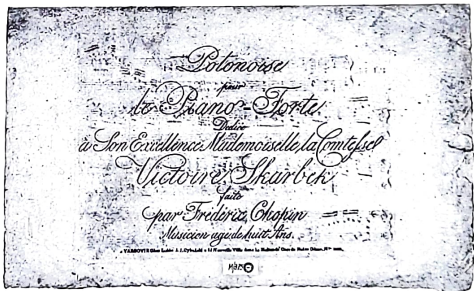 Polonoise
pour
le Piano-Forte
Dediée
à Son Excellence Mademoiselle la Comtesse
Victoire Skarbek
faite
par Frédéric Chopin
Musicien agé de huit Ans.
à VARSOVIE Chez